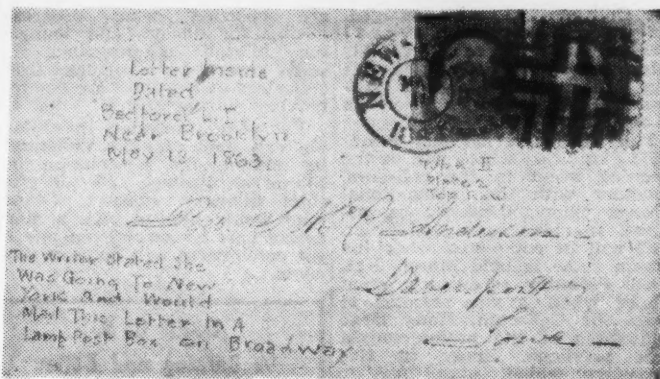 Letter Inside
Dated
Bedford L.I.
Near Brooklyn
May 13 1863
NEW
Type II
Plate 2
Top Row
Anderson
Davenport
Iowa
The Writer Stated She
Was Going To New
York And Would
Mail This Letter In A
Lamp Post Box on Broadway